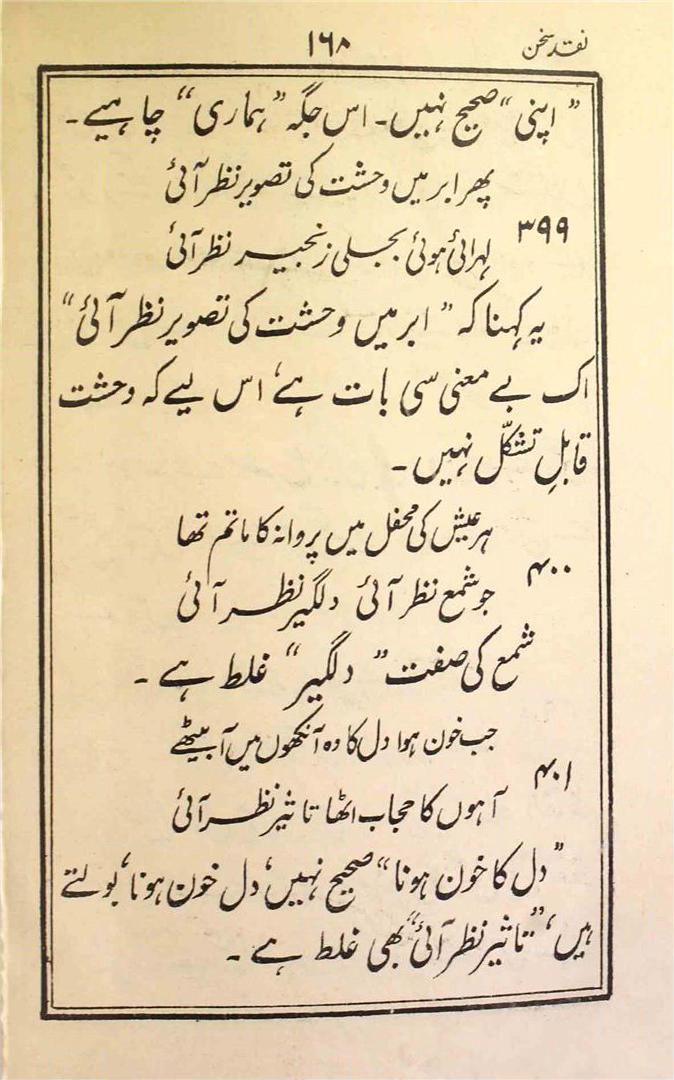 نقد سخن
۱۶۸
” اپنی “ صحیح نہیں۔ اس جگہ ” ہماری “ چاہیے۔
پھر ابر میں وحشت کی تصویر نظر آئی
۳۹۹
لہرائی ہوئی بجلی زنجیر نظر آئی
یہ کہنا کہ ” ابر میں وحشت کی تصویر نظر آئی “
اک بے معنی سی بات ہے، اس لیے کہ وحشت
قابلِ تشکّل نہیں۔
ہر عیش کی محفل میں پروانہ کا ماتم تھا
۴۰۰
جو شمع نظر آئی دلگیر نظر آئی
شمع کی صفت ” دلگیر “ غلط ہے۔
جب خون ہوا دل کا وہ آنکھوں میں آ بیٹھے
۴۰۱
آہوں کا حجاب اٹھا تاثیر نظر آئی
” دل کا خون ہونا “ صحیح نہیں، دل خون ہونا، بولتے
ہیں، ” تاثیر نظر آئی “ بھی غلط ہے۔